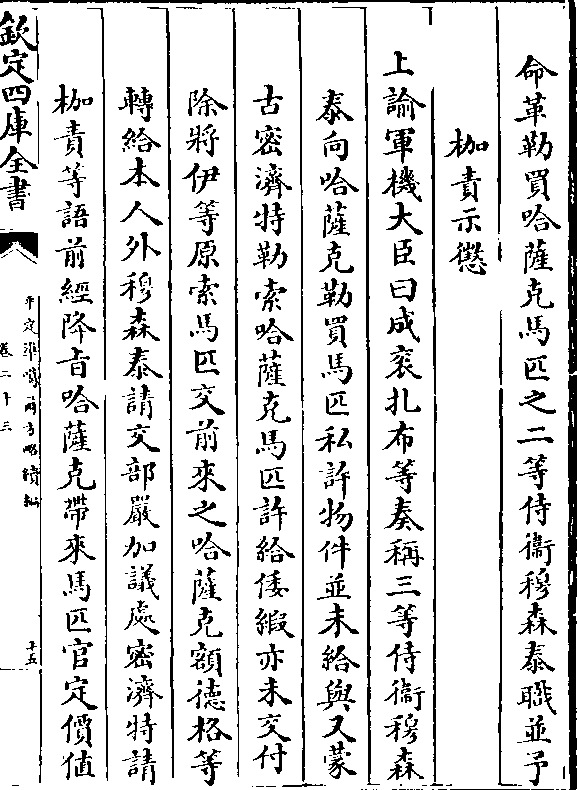 命革勒買哈薩克馬匹之二等侍衞穆森泰職並予
枷責示懲
上諭軍機大臣曰成衮扎布等奏稱三等侍衞穆森
泰向哈薩克勒買馬匹私許物件並未給與又蒙
古密濟特勒索哈薩克馬匹許給倭緞亦未交付
除將伊等原索馬匹交前來之哈薩克額德格等
轉給本人外穆森泰請交部嚴加議處密濟特請
枷責等語前經降旨哈薩克帶來馬匹官定價值
欽定四庫全書
平定準噶爾方略續編
卷二十三
十五